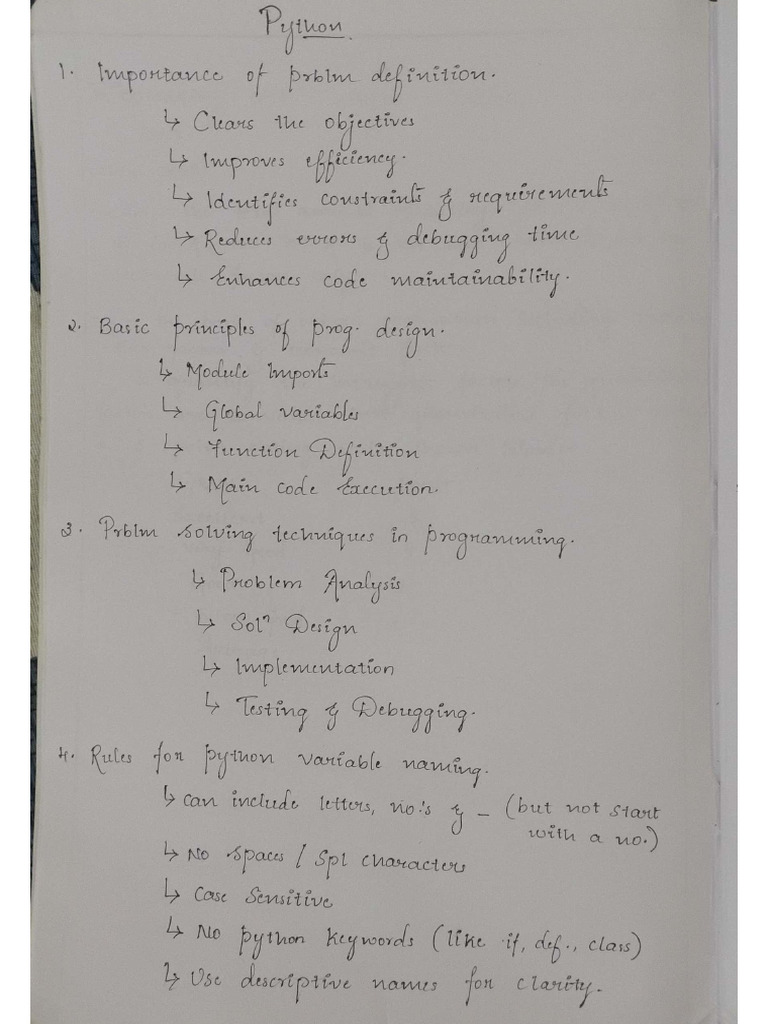 Python
1. Importance of prblm definition.
↳ Clears the objectives
↳ Improves efficiency.
↳ Identifies constraints & requirements
↳ Reduces errors & debugging time
↳ Enhances code maintainability.
2. Basic principles of prog. design.
↳ Module Imports
↳ Global variables
↳ Function Definition
↳ Main code Execution.
3. Prblm solving techniques in programming.
↳ Problem Analysis
↳ Solⁿ Design
↳ Implementation
↳ Testing & Debugging.
4. Rules for python variable naming.
↳ can include letters, no.'s & _ (but not start
with a no.)
↳ No spaces / Spl characters
↳ Case Sensitive
↳ No python keywords (like if, def., class)
↳ Use descriptive names for clarity.